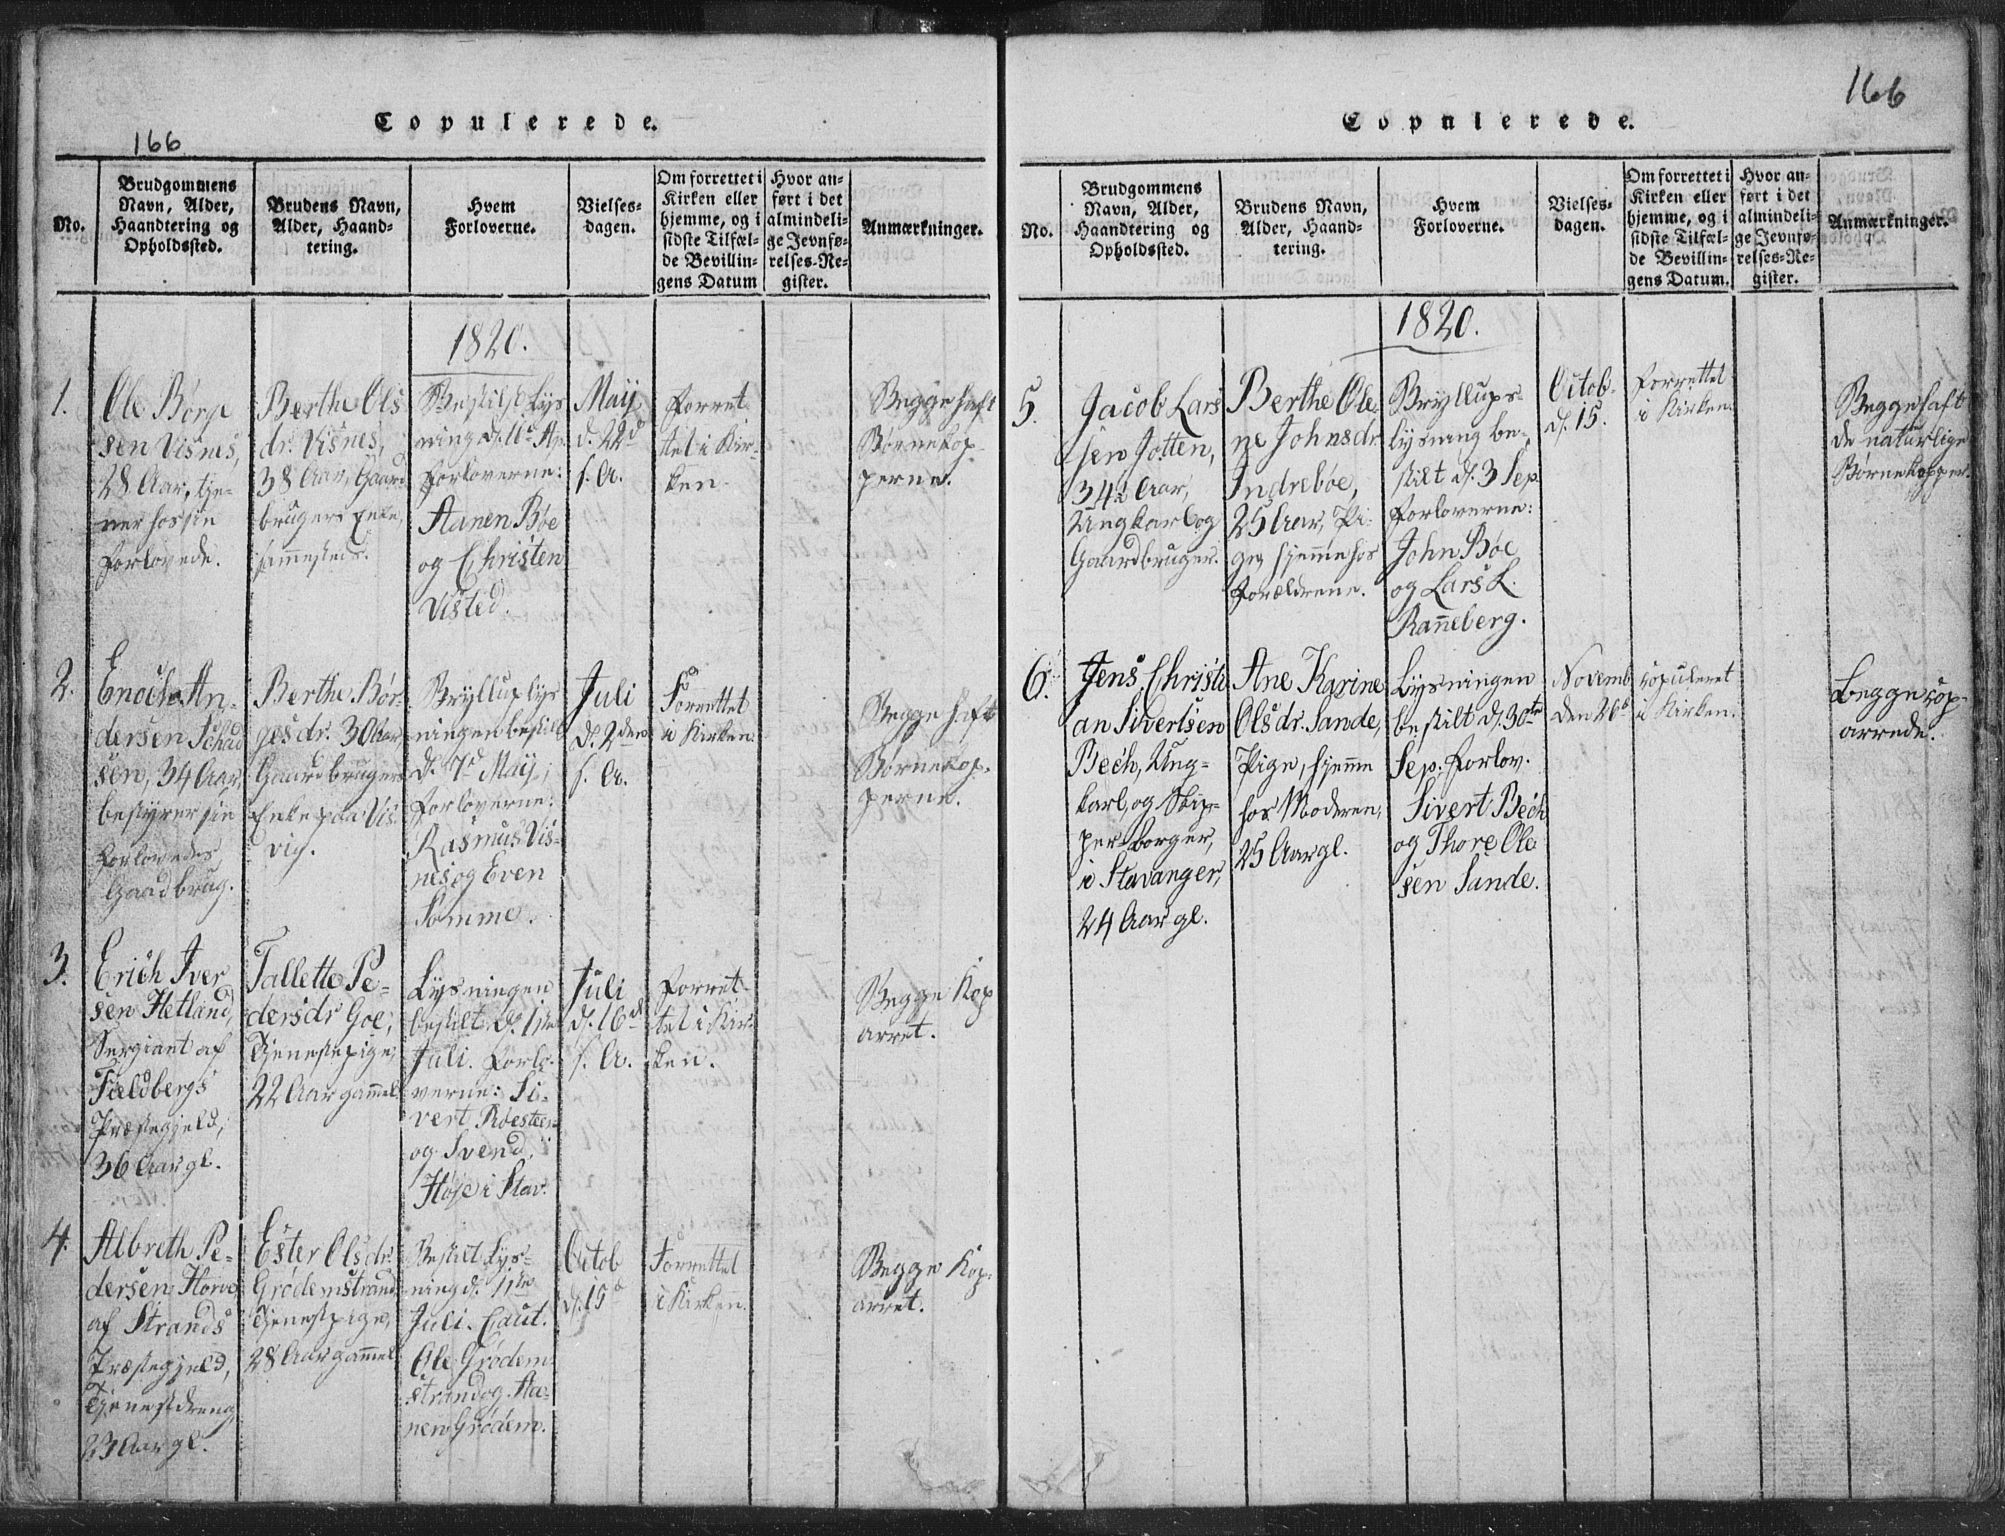 Copulerede.
166
No.
Brudgommens
Navn, Alder,
Haandtering og
Opholdssted.
Brudens Navn,
Alder, Haand-
tering.
Hvem
Forloverne.
Vielses-
dagen.
Om forrettet i
Kirken eller
hjemme, og i
sidste Tilfæl-
de Bevillin-
gens Datum
Hvor an-
ført i det
almindeli-
ge Jevnfø-
relses-Re-
gister.
Anmærkninger.
1820.
1.
Ole Børge
sen Visnes,
28 Aar, tje-
ner hos sin
Forlovede.
Berthe Ols
dr. Visnes,
38 Aar, Gaard
brugers Enke,
sammesteds.
Bestilt Lys
ning d.
Forloverne:
Aanen Bøe
og Christen
Visted.
Maij
d. 22d
s. A.
Forret
tet i Kir-
ken.
Begge haft
Børnekop-
perne.
2.
Enoch An-
dersen Schad
sen, 34 Aar,
bestyrer sin
Forlovedes
Gaadbrug.
Berthe Bør-
gesdr. 30 Aar
Gaardbrugers
Enke paa Vis
vig.
Bryllup lys
ningen bestilt
d. 7d Maij;
Forloverne:
Rasmus Vis-
nes og Even
Somme.
Juli
d. 2den
s. A.
Forrettet
i Kirken.
Begge haft
Børnekop-
perne.
3.
Erich Iver
sen Hetland,
Sergiant af
Fieldbergs
Præstegjeld,
36 Aar gl.
Tallette Pe-
dersdr Goe,
Tjenestepige,
22 Aar gammel.
Lysningen
bestilt d. 1ste
Juli. Forlo-
verne: Si-
vert Røesteen
og Svend
Høse i Stav.
Juli
d. 16d
s. A.
Forret-
tet i Kir-
ken.
Begge Kop
arret.
4.
Albreth Pe-
dersen Horve
af Strands
Præstegjeld,
Tjenestdreng
23 Aar gl.
Ester Olsdr.
Grødemstrand
Tjenestpige,
28 Aar gammel
Bestilt Lys-
ning d. 11te
Juli. Caut.
Ole Grødem
strand og Aa-
nen Grødem.
Octob
d. 15d
Forrettet
i Kirken.
Begge Kop-
arret.
166
Copulerede.
No.
Brudgommens
Navn, Alder,
Haandtering og
Opholdssted.
Brudens Navn,
Alder, Haand-
tering.
Hvem
Forloverne.
Vielses-
dagen.
Om forrettet i
Kirken eller
hjemme, og i
sidste Tilfæl-
de Bevillin-
gens Datum.
Hvor an-
ført i det
almindeli-
ge Jevnfø-
relses-Re-
gister.
Anmærkninger.
1820.
5.
Jacob Lars
sen Jotten,
34 Aar,
Ungkarl og
Gaardbruger.
Berthe Ole-
ne Johnsdr
Indrebøe,
25 Aar, Pi-
ge, hjemme hos
Forældrene.
Bryllups-
lysning be-
stilt d. 3 Sep
Forloverne:
John Bøe
og Lars L.
Ranneberg.
Octob.
d. 15.
Forrettet
i Kirken.
Begge haft
de naturlige
Børnekopper.
6.
Jens Christi
an Sivertsen
Bech, Ung-
karl, og Skip-
per borger,
i Stavanger,
24 Aar gl.
Ane Karine
Olsdr. Sande,
Pige, hjemme
hos Moderen,
25 Aar gl.
Lysningen
bestilt d. 30te
Sep. Forlov.
Sivert Bech
og Thore Ole
sen Sande.
Novemb
den 26d
copuleret
i Kirken.
Begge cop-
arrede.